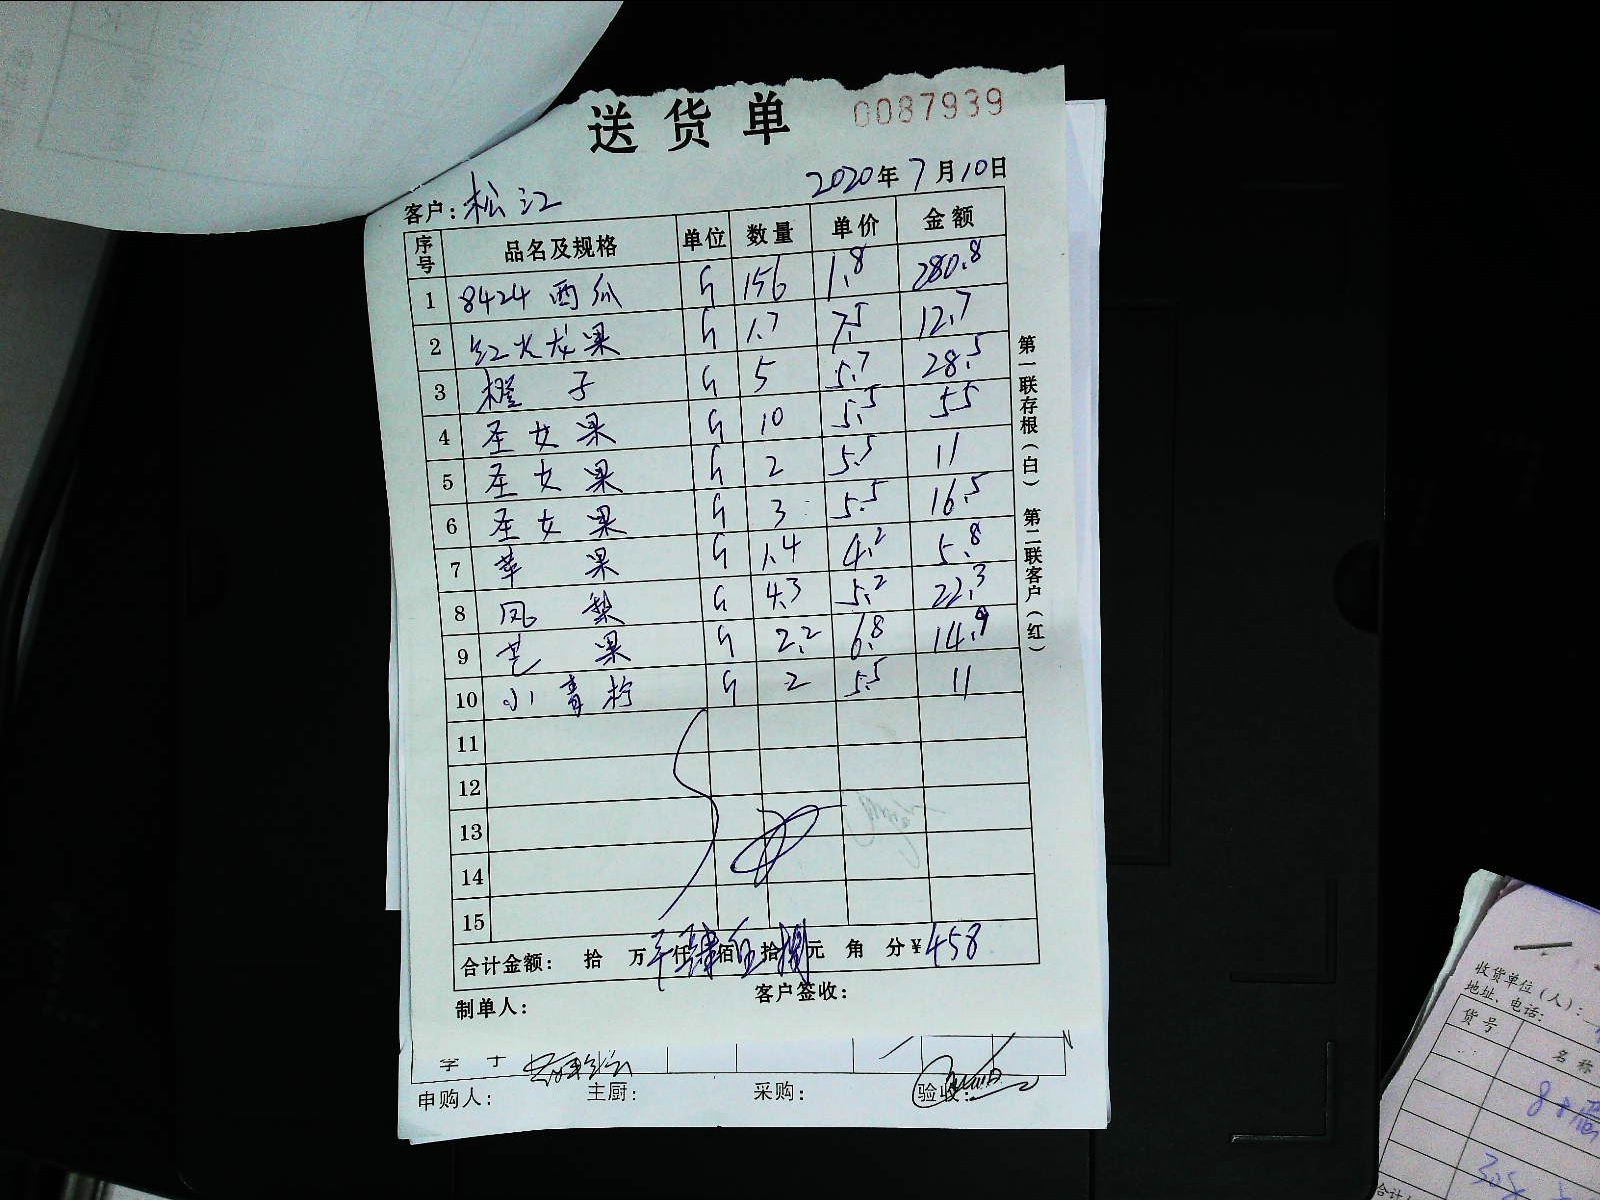 送货单 0087939
客户: 松江 2020年7月10日
序号 品名及规格 单位 数量 单价 金额
1 8424西瓜 斤 156 1.8 280.8
2 红火龙果 斤 1.7 7.5 12.7
3 橙子 斤 5 5.7 28.5
4 圣女果 斤 10 5.5 55
5 圣女果 斤 2 5.5 11
6 圣女果 斤 3 5.5 16.5
7 苹果 斤 1.4 4.2 5.8
8 凤梨 斤 4.3 5.2 22.3
9 芒果 斤 2.2 6.8 14.9
10 小青柠 斤 2 5.5 11
11
12
13
14
15
合计金额: 拾 万 仟肆佰伍拾捌元 角 分¥458
制单人: 客户签收:
第一联存根(白) 第二联客户(红)
申购人: 主厨: 采购: 验收:
收货单位(人):
地址、电话:
货号 名称